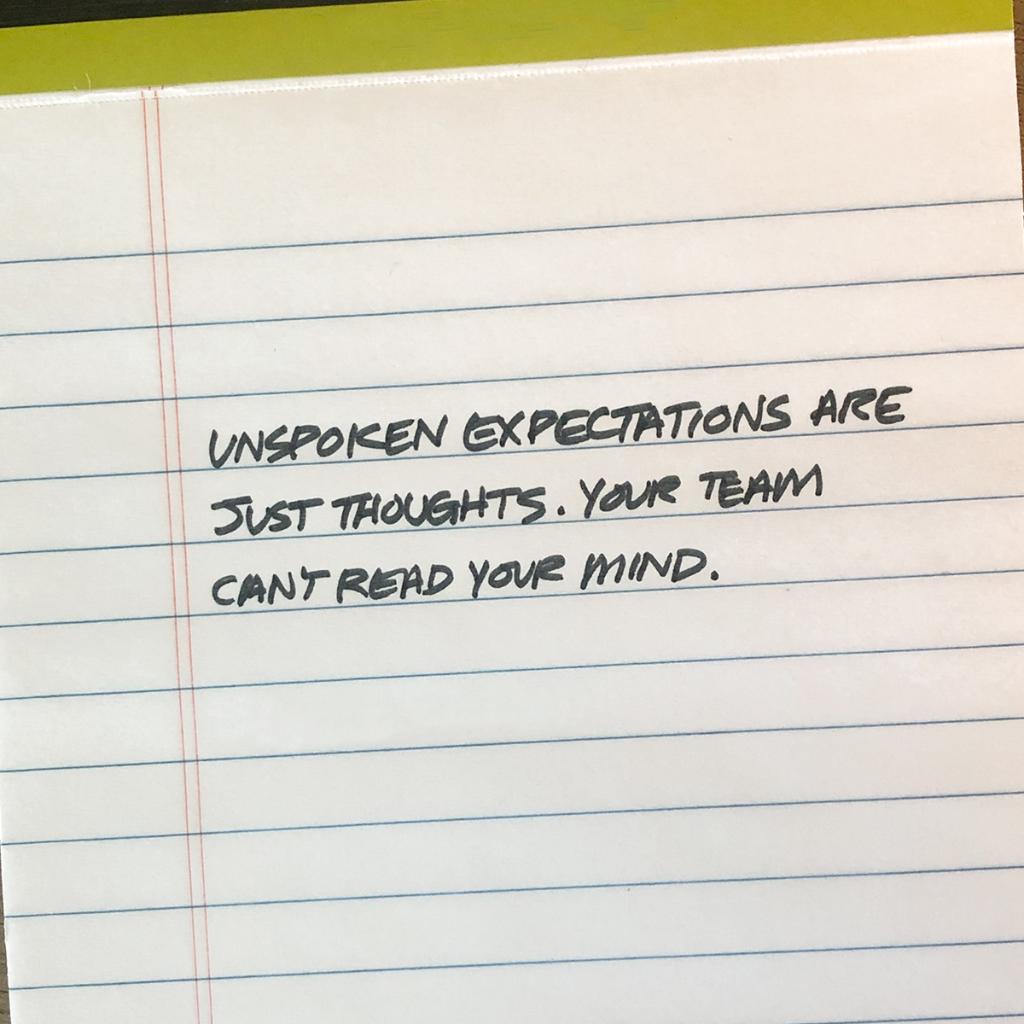 UNSPOKEN EXPECTATIONS ARE
JUST THOUGHTS. YOUR TEAM
CAN'T READ YOUR MIND.